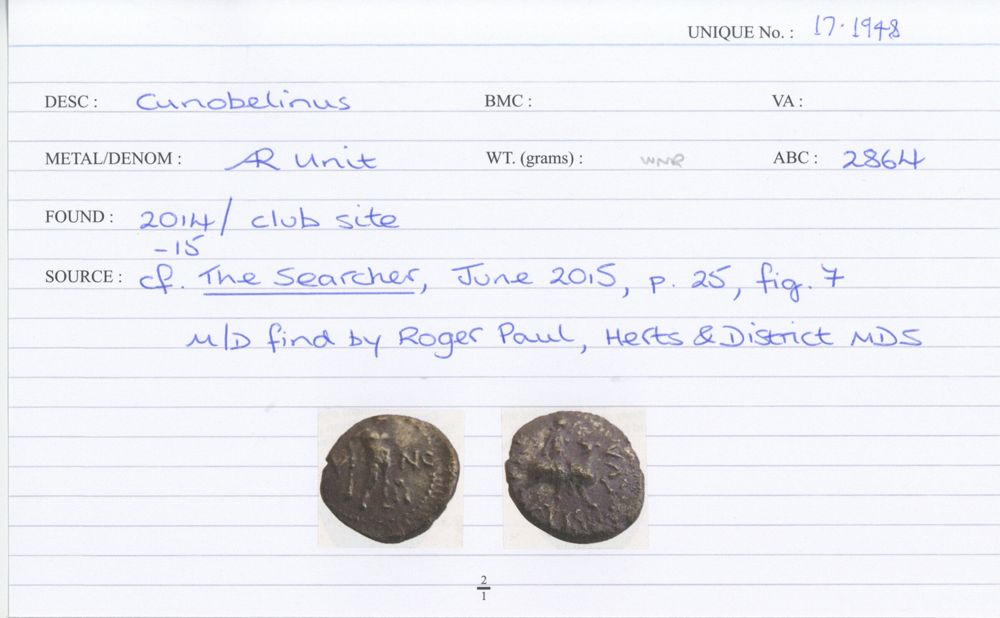 UNIQUE No. : 17.1948
DESC : Cunobelinus BMC : VA :
METAL/DENOM : AR Unit WT. (grams) : WNR ABC : 2864
FOUND : 2014/ club site
-15
SOURCE : cf. The Searcher, June 2015, p. 25, fig. 7
M/D find by Roger Paul, Herts & District MDS
NC
2
1